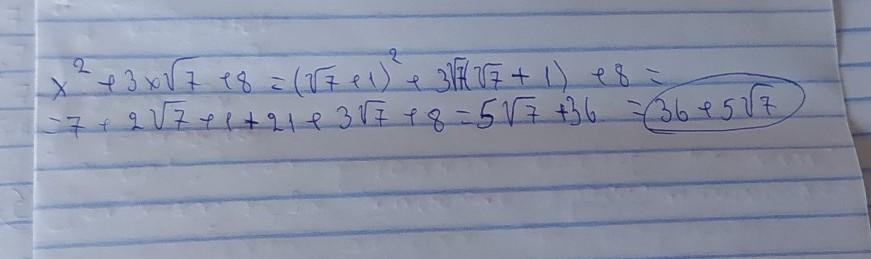 x² + 3x√7 + 8 = (√7 + 1)² + 3√7(√7 + 1) + 8 =
= 7 + 2√7 + 1 + 21 + 3√7 + 8 = 5√7 + 36 = 36 + 5√7